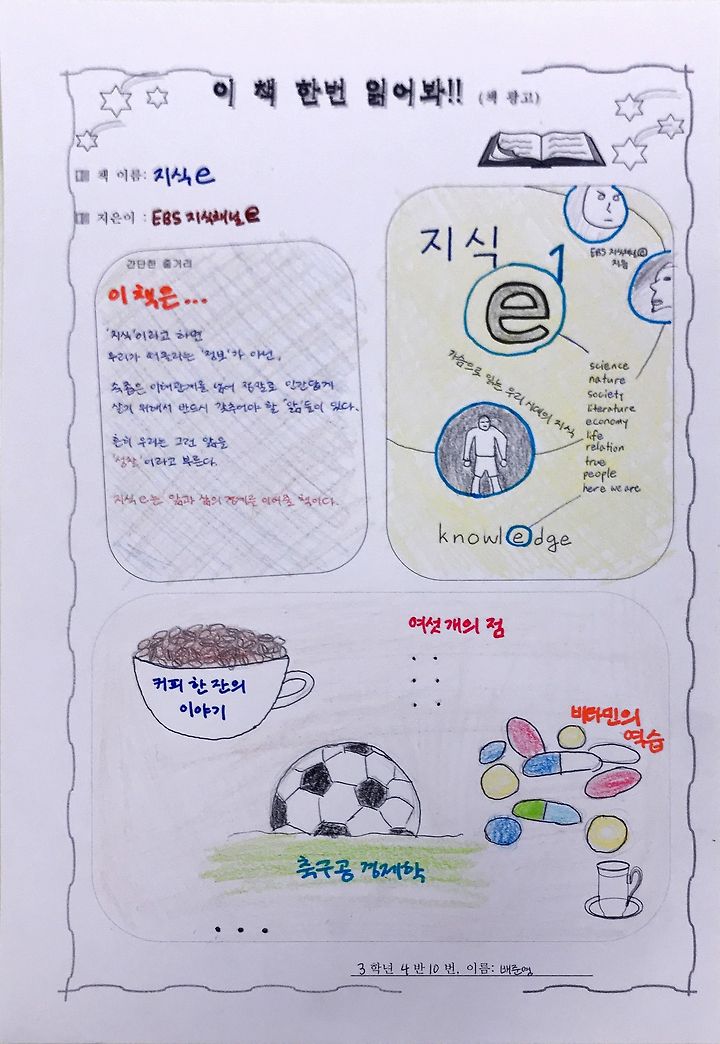 이 책 한번 읽어봐!! (책 광고)
책 이름: 지식e
지은이 : EBS 지식채널e
간단한 줄거리
이 책은...
'지식'이라고 하면
우리가 떠올리는 '정보'가 아닌,
속좁은 이해관계를 넘어 정말로 인간답게
살기 위해서 반드시 갖추어야 할 '앎'들이 있다.
흔히 우리는 그런 앎을
'성찰'이라고 부른다.
지식e는 앎과 삶의 경계를 이어줄 책이다.
지식
e
1
EBS 지식채널e
지음
가슴으로 읽는 우리 시대의 지식
science
nature
society
literature
economy
life
relation
true
people
here we are
knowledge
여섯 개의 점
커피 한 잔의
이야기
비타민의
역습
축구공 경제학
...
3학년 4반 10번. 이름: 배준영